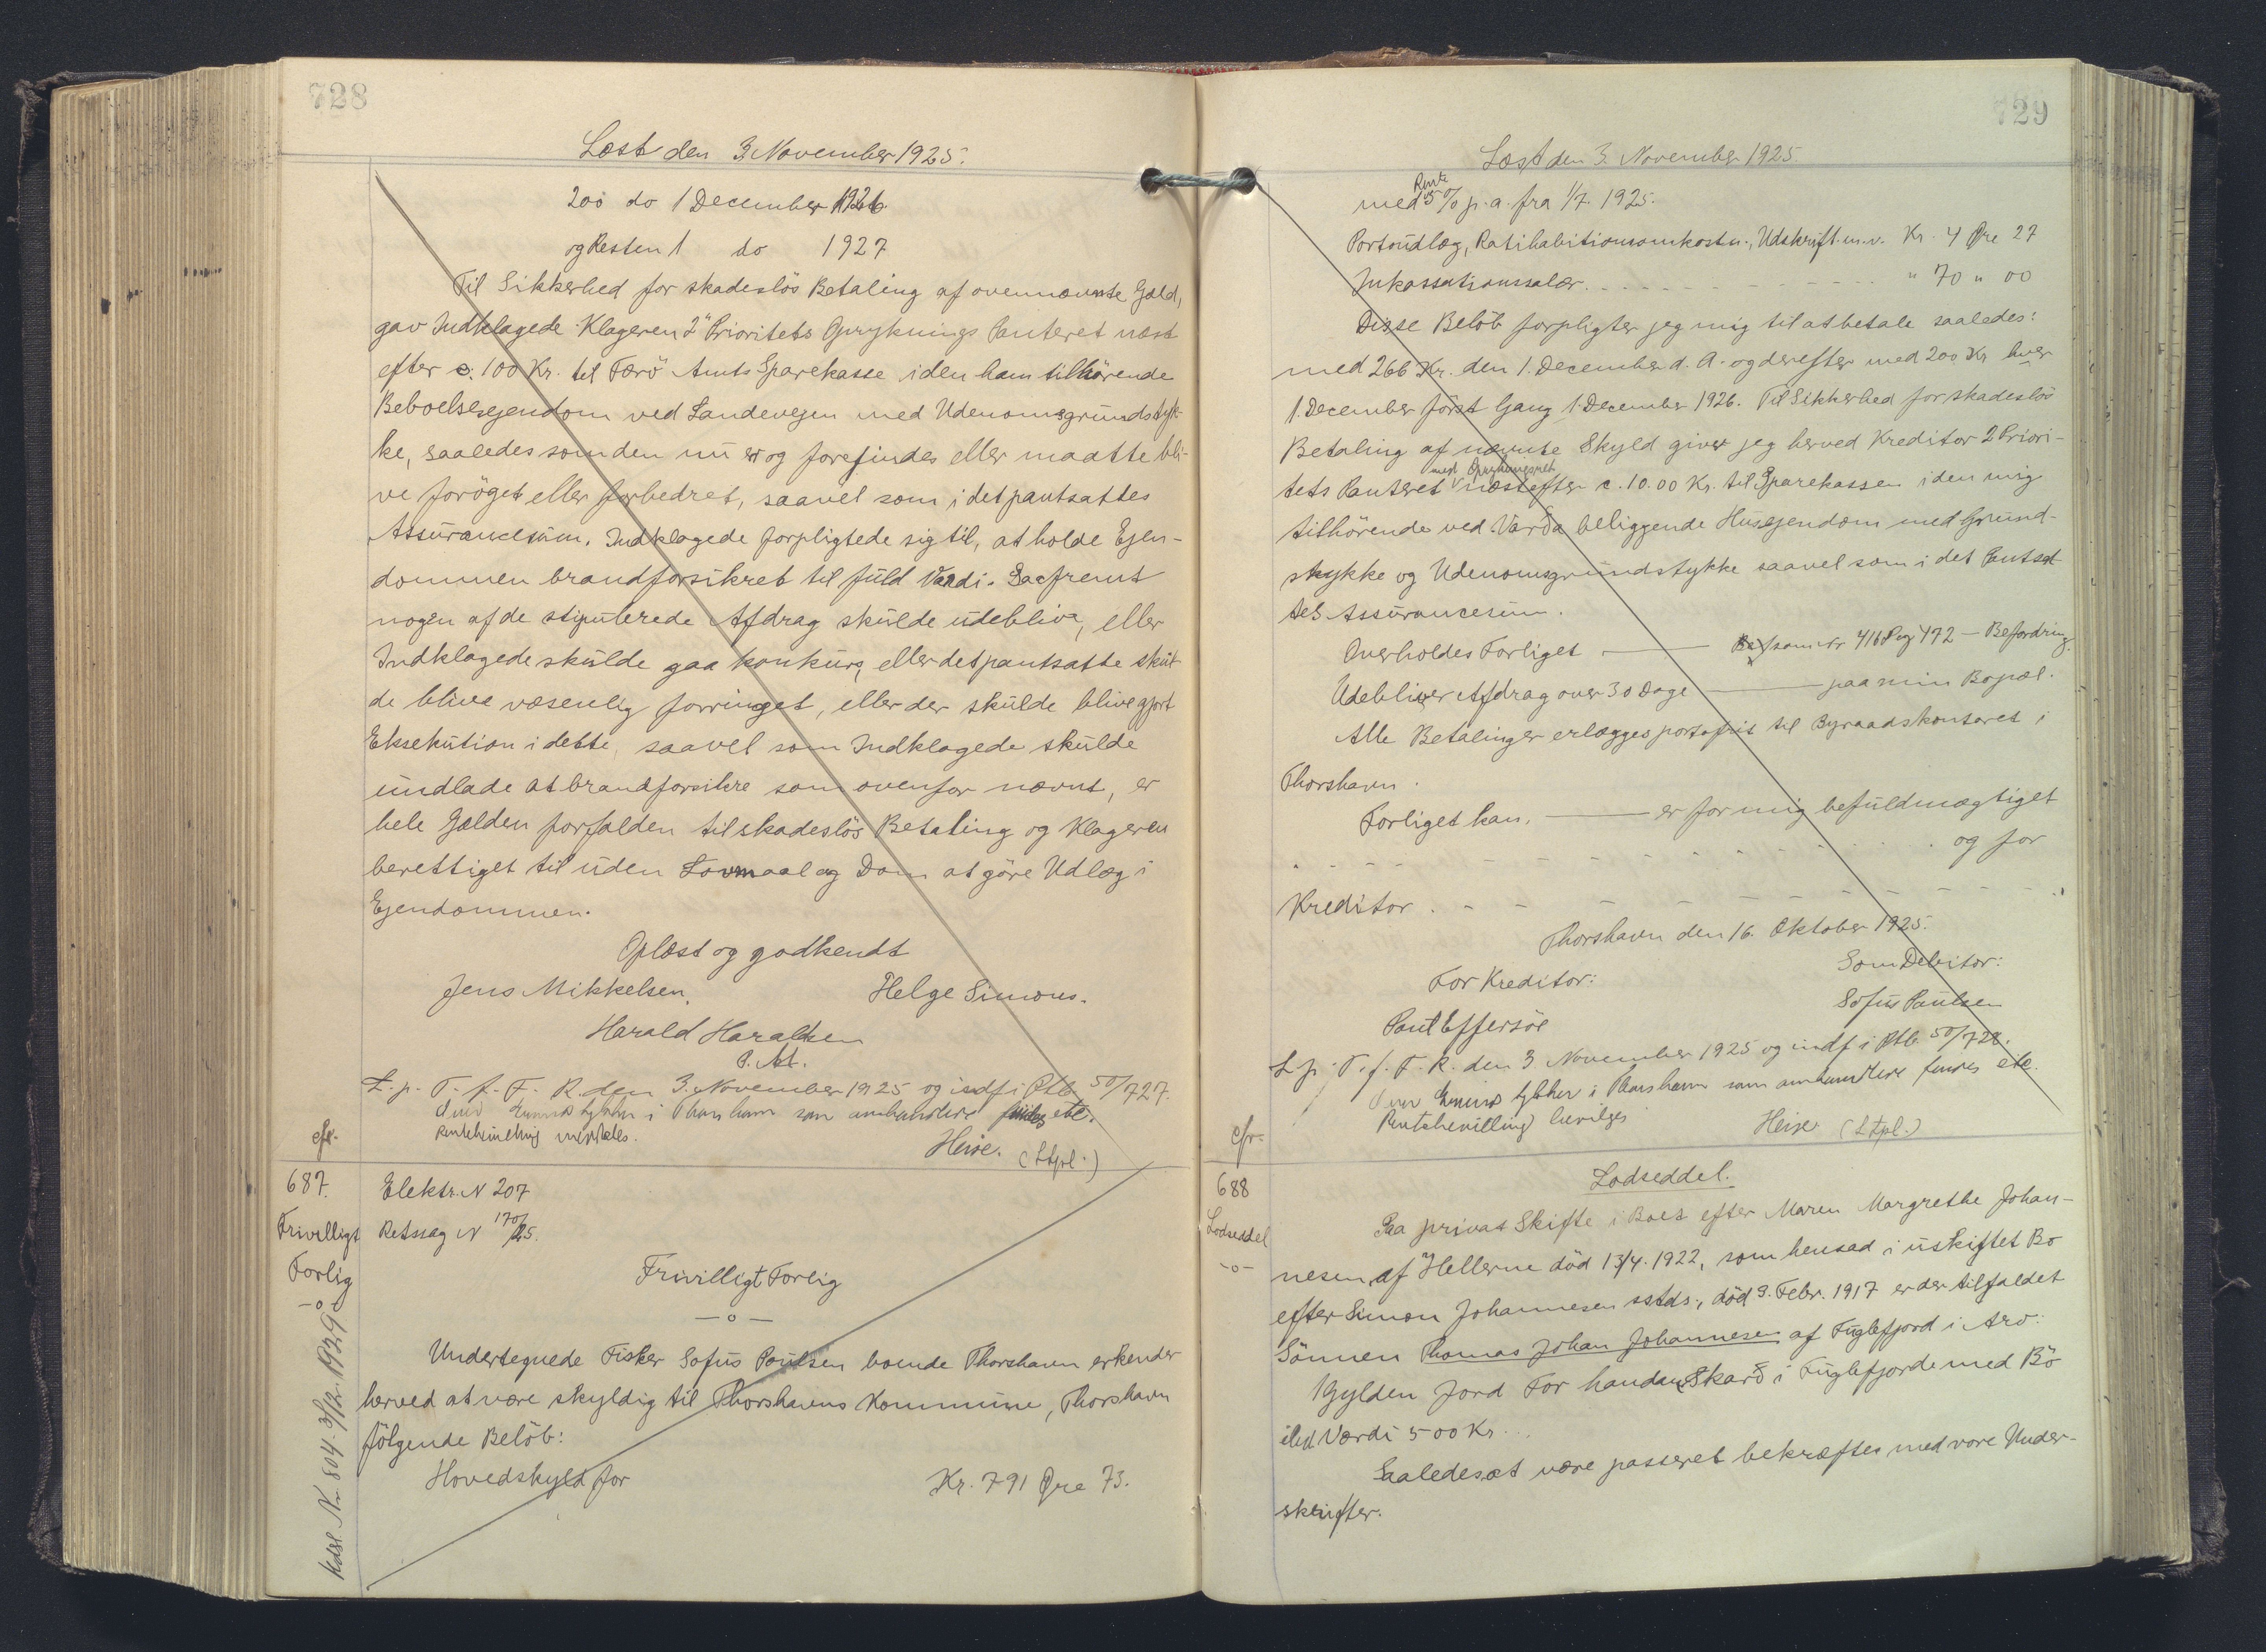 728
Læst den 3 November 1925.
200 do 1 December 1926.
og Resten 1 do 1927
Til Sikkerhed for skadeslös Betaling af ovennævnte Gæld,
gav Indklagede Klageren 2' Prioritets Opryknings Panteret næst
efter c. 100 Kr. til Færö Amts Sparekasse i den ham tilhörende
Beboelsesejendom ved Landevejen med Udenomsgrundstyk-
ke, saaledes som den nu er og forefindes eller maatte bli-
ve foröget eller forbedret, saavel som i det pantsattes
Assurancesum. Indklagede forpligtede sig til, at holde Ejen-
dommen brandforsikret til fuld Værdi. Saafremt
nogen af de stipulerede Afdrag skulde udeblive, eller
Indklagede skulde gaa konkurs, eller det pantsatte skul-
de blive væsenlig forringet, eller der skulde blive gjort
Eksekution i dette, saavel som Indklagede skulde
undlade at brandforsikre som ovenfor nævnt, er
hele Gælden forfalden til skadeslös Betaling og Klageren
berettiget til uden Lovmaal og Dom at göre Udlæg i
Ejendommen.
Oplæst og godkendt
Jens Mikkelsen. Helge Simons.
Harald Haraldsen
P. At.
L. p. T. f. F. R. den 3. November 1925 og indf i Ptb 50/727.
i Thorshavn som anhændiere findes etc.
Heise. (Stpl.)
cfr.
687. Elektr. N 207
Frivilligt Retssag N 170/25.
Forlig
-o-
Frivilligt Forlig
-o-
Undertegnede Fisker Sofus Poulsen boende Thorshavn erkender
herved at være skyldig til Thorshavns Kommune, Thorshavn
fölgende Belöb:
Hovedskyld for Kr. 791 Öre 73.
Kdsl. Nr. 804. 3/12. 1929
729
Læst den 3. November 1925.
Rente
med 5% p.a. fra 1/7. 1925.
Portoudlæg, Ratihabitionsomkostn., Udskrift. m.v. Kr. 4 Öre 27
Inkassationssalær. " 70 " 00
Disse Belöb forpligter jeg mig til at betale saaledes:
med 266 Kr. den 1. December d. A. og derefter med 200 Kr hver
1. December först Gang 1. December 1926. Til Sikkerhed for skadeslös
Betaling af nævnte Skyld giver jeg herved Kreditor 2 Priori-
med Oprykningsret
tets Panteret næstefter c. 10.00 Kr. til Sparekassen i den mig
tilhörende ved Varda beliggende Husejendom med Grund-
stykke og Udenomsgrundstykke saavel som i det Pantsat-
tes Assurancesum.
Overholdes Forliget — som Nr 416 og 472 — Befordring.
Udebliver Afdrag over 30 Dage — paa min Bopæl.
Alle Betalinger erlægges portofrit til Byraadskontoret i
Thorshavn.
Forliget kan. — er for mig befuldmægtiget
og for
Kreditor.
Thorshavn den 16. Oktober 1925.
For Kreditor: Som Debitor:
Poul Effersöe Sofus Paulsen
L p. T. f. F. R. den 3 November 1925 og indf i Ptb. 50/728.
i Thorshavn som anhændiere findes etc.
bevilges Heise (Stpl.)
cfr.
688
Lodseddel
-o-
Lodseddel.
Paa privat Skifte i Boet efter Maren Margrethe Johan-
nesen, af Hellerne död 13/4. 1922, som hensad i uskiftet Bo
efter Simon Johannesen sstds., död 9. Febr. 1917 er der tilfaldet
Sönnen Thomas Johan Johannesen af Fuglefjord i Arv:
1 Gylden Jord For handan Skarð i Fuglefjorde med Bö
Værdi 500 Kr..
Saaledes at være passeret bekræftes med vore Under-
skrifter.